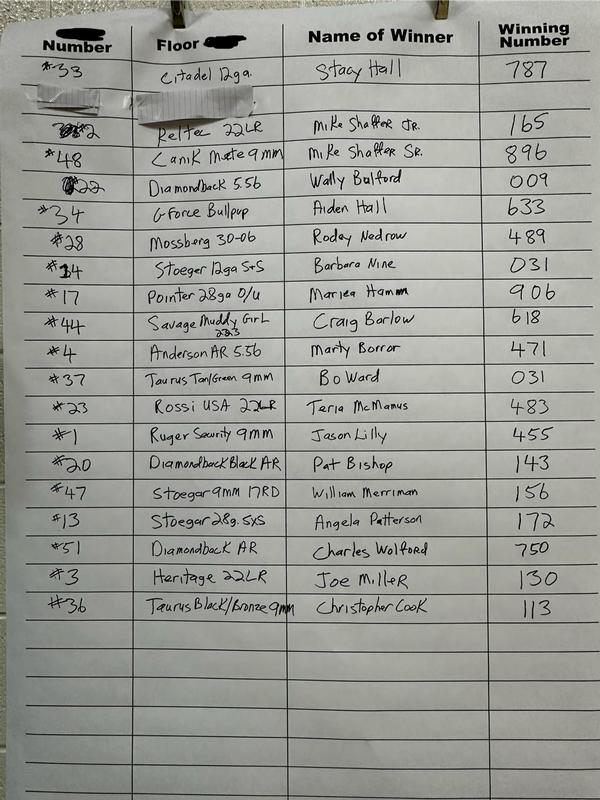 Number Floor Name of Winner Winning Number
#33 Citadel 12ga. Stacy Hall 787
#2 Keltec 22LR Mike Shaffer Jr. 165
#48 Canik Mete 9mm Mike Shaffer Sr. 896
22 Diamondback 5.56 Wally Balford 009
#34 GForce Bullpup Aiden Hall 633
#28 Mossberg 30-06 Rodey Nedrow 489
#34 Stoeger 12ga SxS Barbara Nine 031
#17 Pointer 28ga O/U Mariea Hamm 906
#44 Savage Muddy Girl 223 Craig Barlow 618
#4 Anderson AR 5.56 Marty Borror 471
#37 Taurus Tan/Green 9mm Bo Ward 031
#23 Rossi USA 22LR Teria McManus 483
#1 Ruger Security 9mm Jason Lilly 455
#20 Diamondback Black AR Pat Bishop 143
#47 Stoegar 9mm 17RD William Merriman 156
#13 Stoegar 28g. SxS Angela Patterson 172
#51 Diamondback AR Charles Wolford 750
#3 Heritage 22LR Joe Miller 130
#36 Taurus Black/Bronze 9mm Christopher Cook 113